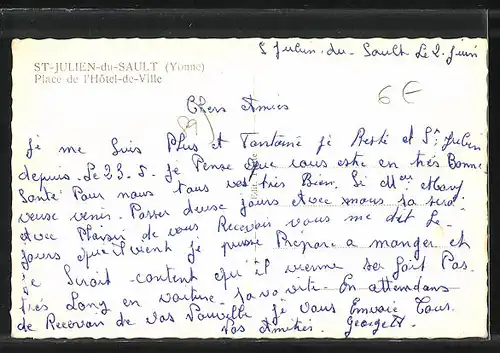 St Julien-du-Sault Le 2 Juin
ST-JULIEN-du-SAULT (Yonne)
Place de l'Hôtel-de-Ville
6€
Chers Amies
89
Je me suis Plus et je Resté et St Julien
depuis Le 23.5. Je Pense que vous estre en très Bonne
Santé Pour nous tous vas très Bien. Si Mme
veuse venir. Passer deuse jours avec nous sa sera
avec Plaisir de vous Recevoir vous me dit le
jours qu'il vient je puisse Prépare a manger et
je Serait content qu'il vienne se fait Pas
très Long en voiture sa va vite En attendans
de Recevoir de vos Nouvelle je vous Envoie Tous
Vos Amitiés. Georgette